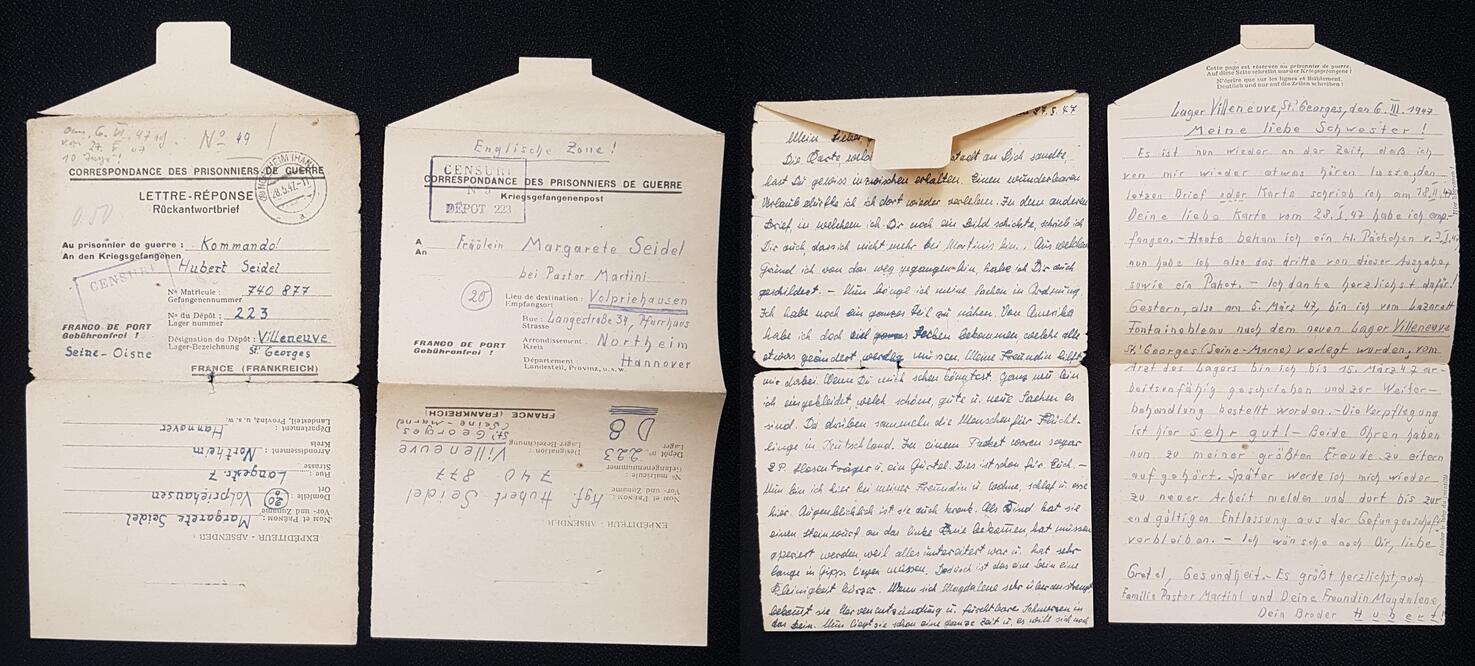 am. 6. VI. 47
10 Tage!
No 49
CORRESPONDANCE DES PRISONNIERS DE GUERRE
LETTRE-RÉPONSE
Rückantwortbrief
28.5.47
0.50
Au prisonnier de guerre : Kommando!
An den Kriegsgefangenen
Hubert Seidel
CENSURÉ
No Matricule : 740 877
Gefangenennummer
No du Dépôt : 223
Lager nummer
FRANCO DE PORT
Gebührenfrei !
Désignation du Dépôt : Villeneuve
Lager-Bezeichnung St Georges
Seine-Oisne
FRANCE (FRANKREICH)
EXPÉDITEUR - ABSENDER :
Nom et Prénom : Margarete Seidel
Vor- und Zuname
Domicile : (20) Volpriehausen
Ort
Rue : Langestr. 7
Strasse
Arrondissement : Northeim
Kreis
Département : Hannover
Landesteil, Provinz, u.s.w.
Englische Zone!
CENSURÉ
DÉPOT 223
CORRESPONDANCE DES PRISONNIERS DE GUERRE
Kriegsgefangenenpost
A
An
Fräulein Margarete Seidel
bei Pastor Martini
(20)
Lieu de destination : Volpriehausen
Empfangsort
Rue : Langestraße 34, Pfarrhaus
Strasse
FRANCO DE PORT
Gebührenfrei !
Arrondissement : Northeim
Kreis
Département : Hannover
Landesteil, Provinz, u.s.w.
EXPÉDITEUR - ABSENDER :
Nom et Prénom : Kgf. Hubert Seidel
Vor- und Zuname
No matricule 740 877
Gefangenennummer
Dépôt no 223 Désignation Villeneuve
Lager D 8 Lager Bezeichnung St Georges
(Seine-Marne)
FRANCE (FRANKREICH)
27.5.47
Mein lieber
Die Karte stadt an Dich sandte,
hast Du gewiss inzwischen erhalten. Einen wunderbaren
Urlaub durfte ich dort wieder verleben. In dem anderen
Brief, in welchem ich Dir noch ein Bild schickte, schrieb ich
Dir auch, dass ich nicht mehr bei Martinis bin. Aus welchem
Grund ich von da weg gegangen bin, habe ich Dir auch
geschildert. – Nun bringe ich meine Sachen in Ordnung.
Ich habe noch ein ganzes Teil zu nähen. Von Amerika
habe ich doch Sachen bekommen welche alle
etwas geändert werden müssen. Meine Freundin hilft
mir dabei. Wenn Du mich sehen könntest. Ganz neu bin
ich eingekleidet, welch schöne, gute u. neue Sachen es
sind. Da drüben sammeln die Menschen für Flücht-
linge in Deutschland. In einem Paket waren sogar
2 P. Hosenträger u. ein Gürtel. Dies ist schon für Dich. –
Nun bin ich hier bei meiner Freundin u. wohne, schlaf u. esse
hier. Augenblicklich ist sie auch krank. Als Kind hat sie
einen Steinwurf an das linke Knie bekommen, hat müssen
operiert werden weil alles untereitert war u. hat sehr
lange in Gips liegen müssen. Dadurch ist das eine Bein eine
Kleinigkeit kürzer. Wenn sich Magdalene sehr überanstrengt
bekommt sie Nervenentzündung u. furchtbare Schmerzen in
das Bein. Nun liegt sie schon eine ganze Zeit u. es will sich noch
Cette page est réservée au prisonnier de guerre.
Auf diese Seite schreibt nur der Kriegsgefangene !
N'écrire que sur les lignes et lisiblement.
Deutlich und nur auf die Zeilen schreiben !
Lager Villeneuve, St Georges, den 6. III. 1947
Meine liebe Schwester !
Es ist nun wieder an der Zeit, daß ich
von mir wieder etwas hören lasse, den
letzen Brief oder Karte schrieb ich am 18.II.47
Deine liebe Karte vom 28.I.47 habe ich emp-
fangen. – Heute bekam ich ein kl. Päckchen v. 3.I.47
nun habe ich also das dritte von dieser Ausgabe,
sowie ein Paket. – Ich danke herzlichst dafür!
Gestern, also am 5. März 47, bin ich vom Lazarett
Fontainebleau nach dem neuen Lager Villeneuve
St. Georges (Seine-Marne) verlegt worden, vom
Arzt des Lagers bin ich bis 15. März 47 ar-
beitsenfähig geschrieben und zur Weiter-
behandlung bestellt worden. – Die Verpflegung
ist hier sehr gut! – Beide Ohren haben
nun zu meiner größten Freude zu eitern
aufgehört. Später werde ich mich wieder
zu neuer Arbeit melden und dort bis zur
endgültigen Entlassung aus der Gefangenschaft
verbleiben. – Ich wünsche auch Dir, liebe
Gretel, Gesundheit. – Es grüßt herzlichst, auch
Familie Pastor Martini und Deine Freundin Magdalene,
Dein Bruder Hubert!